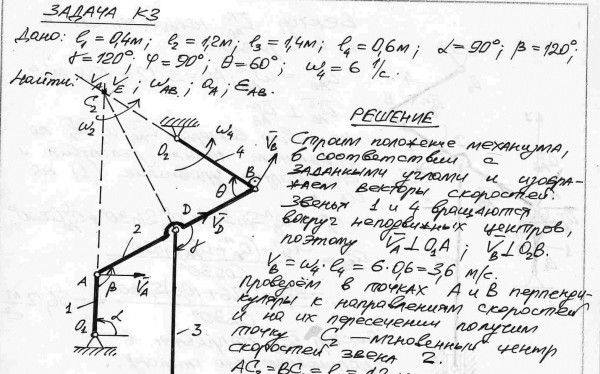 ЗАДАЧА К3
Дано: l₁ = 0,4м; l₂ = 1,2м; l₃ = 1,4м; l₄ = 0,6м; α = 90°; β = 120°;
γ = 120°; φ = 90°; θ = 60°; ω₄ = 6 1/с.
Найти: V_A; V_E; ω_AB; a_A; ε_AB.
C₂
ω₂
O₂
ω₄
V̄_B
4
B
θ
D
V̄_D
2
γ
A
β
V̄_A
1
α
O₁
3
РЕШЕНИЕ
Строим положение механизма,
в соответствии с
заданными углами и изобра-
жаем векторы скоростей.
Звенья 1 и 4 вращаются
вокруг неподвижных центров,
поэтому V̄_A ⊥ O₁A; V̄_B ⊥ O₂B.
V_B = ω₄·l₄ = 6·0,6 = 3,6 м/с.
Проведём в точках A и B перпенди-
куляры к направлениям скоростей
и на их пересечении получим
точку C₂ — мгновенный центр
скоростей звена 2.
AC₂ = BC₂ = l₂ = 1,2 м